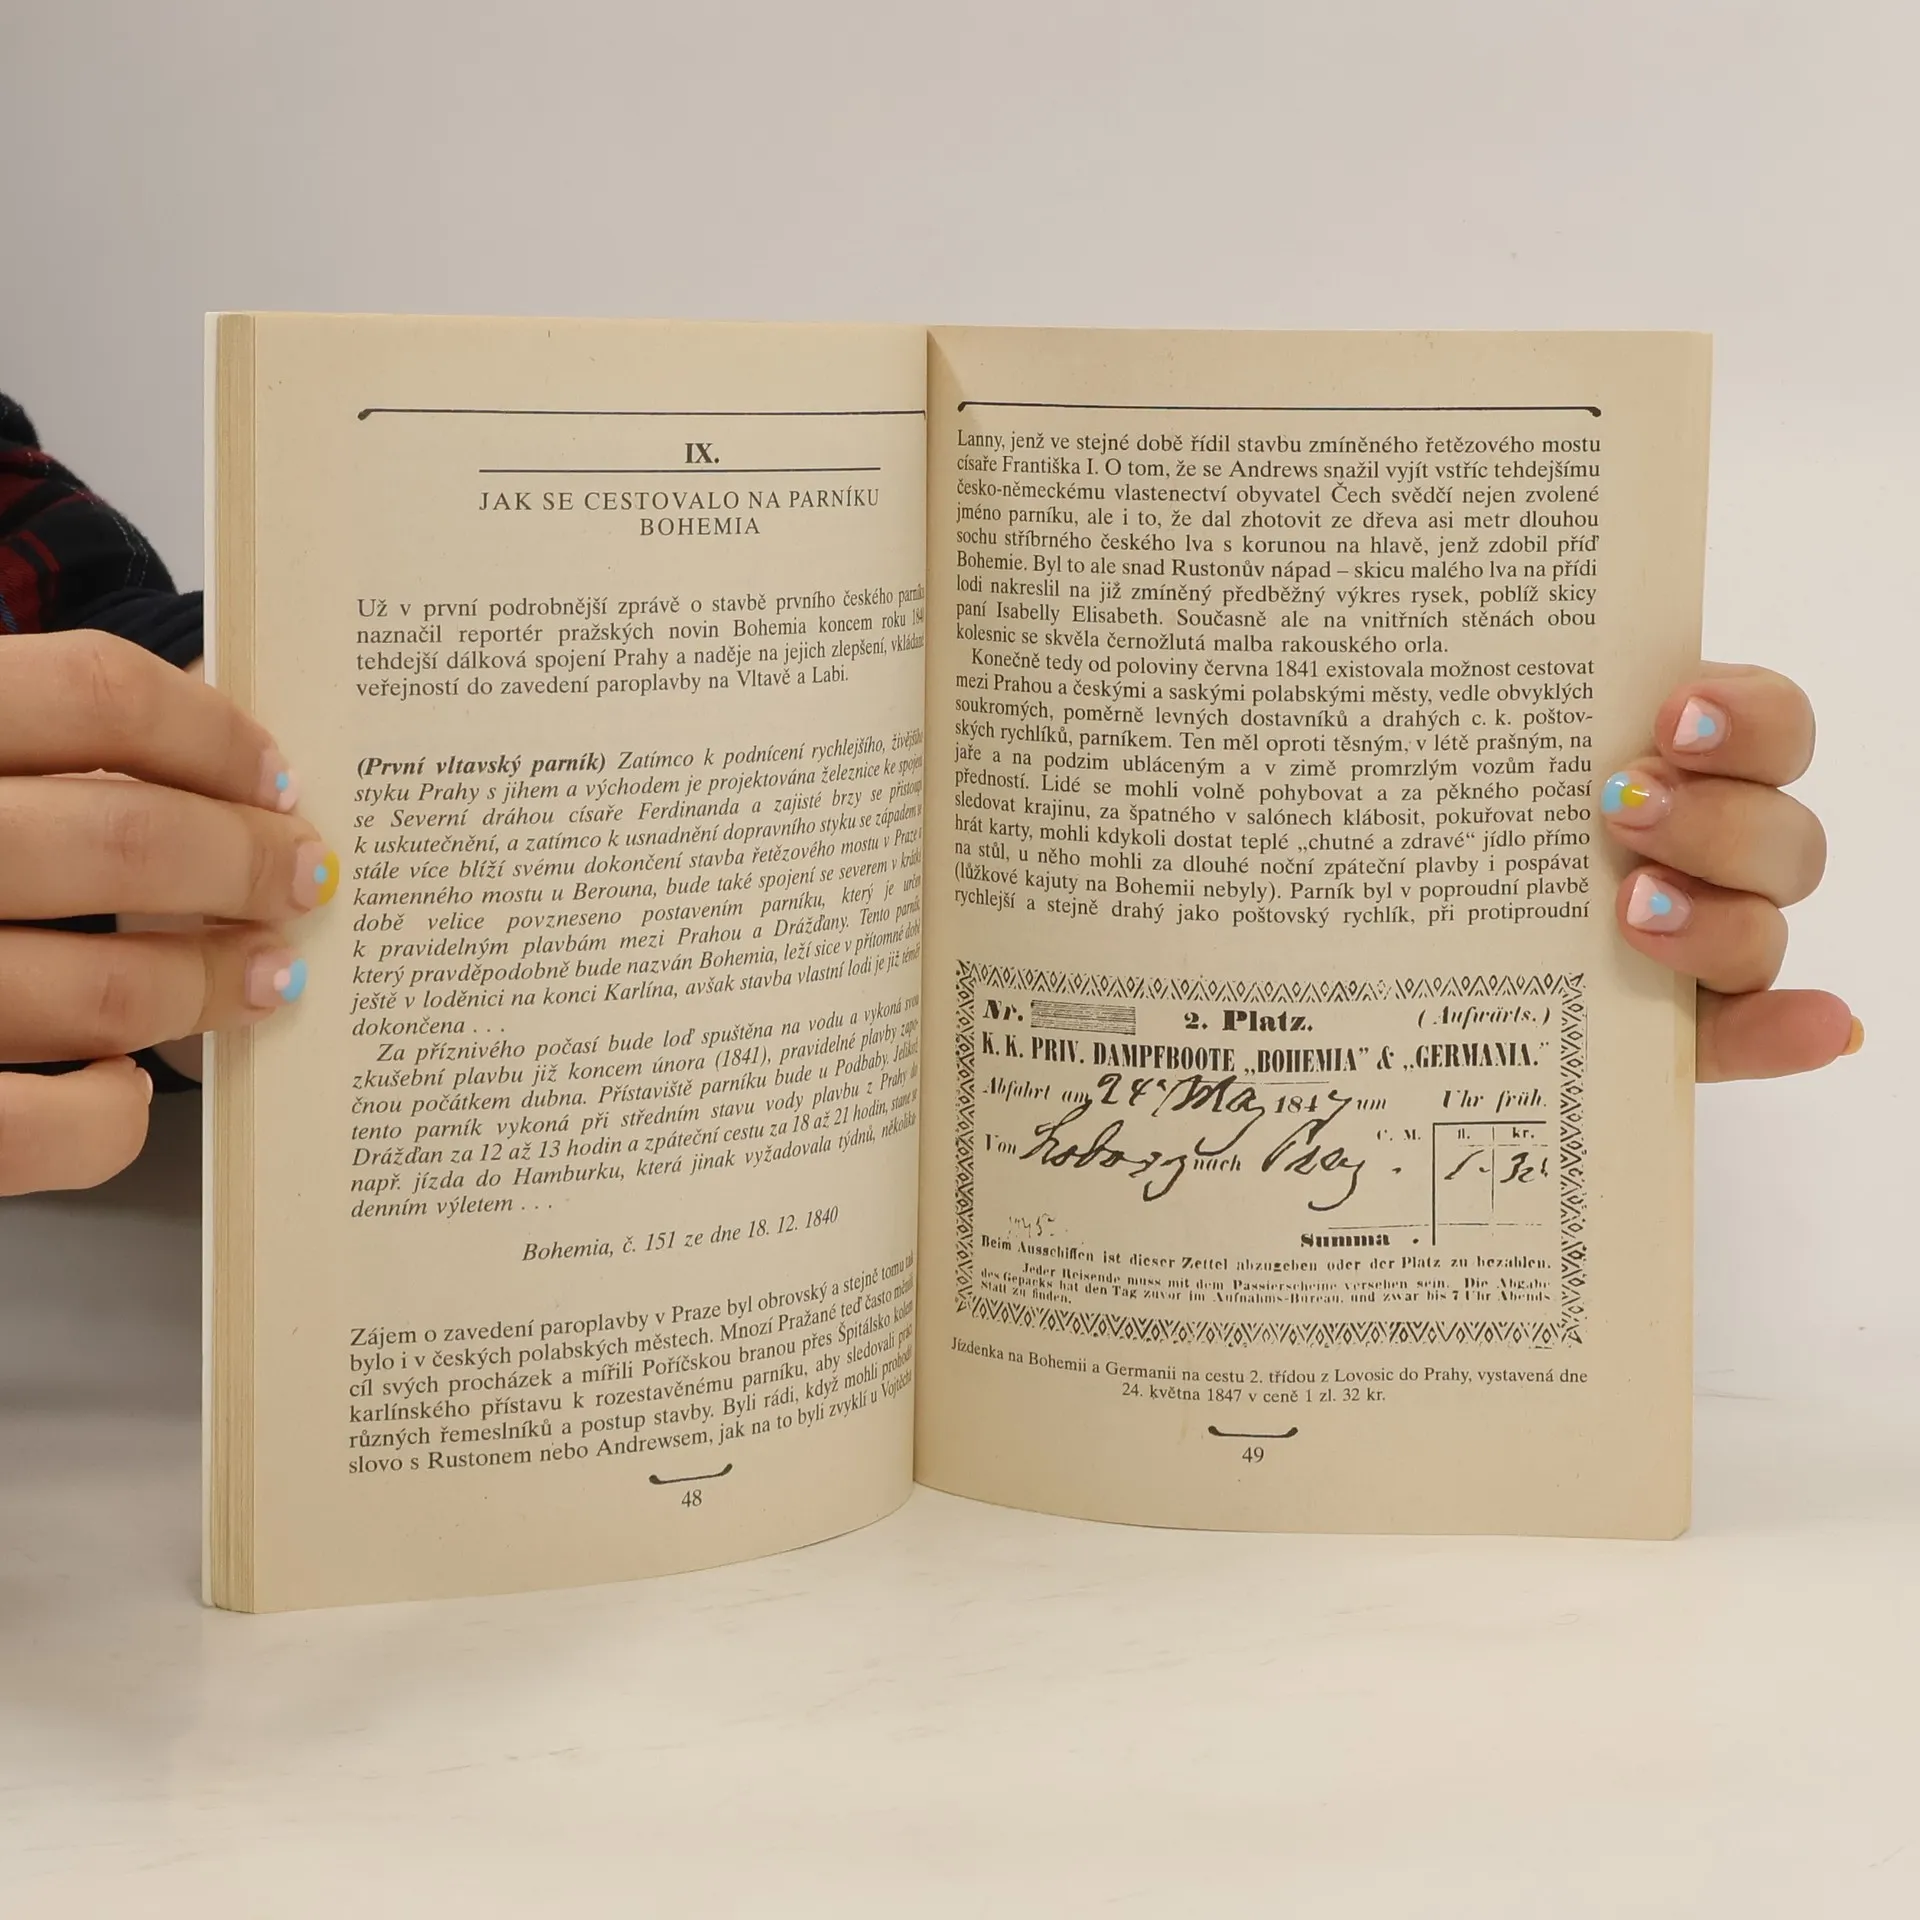 IX.
JAK SE CESTOVALO NA PARNÍKU
BOHEMIA
Už v první podrobnější zprávě o stavbě prvního českého
naznačil reportér pražských novin Bohemia koncem roku
tehdejší dálková spojení Prahy a naděje na jejich zlepšení,
veřejností do zavedení paroplavby na Vltavě a Labi.
(První vltavský parník) Zatímco k podnícení rychlejšího,
styku Prahy s jihem a východem je projektována železnice ke
se Severní dráhou císaře Ferdinanda a zajisté brzy se
k uskutečnění, a zatímco k usnadnění dopravního styku se západem
stále více blíží svému dokončení stavba řetězového mostu v Praze
kamenného mostu u Berouna, bude také spojení se severem v
době velice povzneseno postavením parníku, který je
k pravidelným plavbám mezi Prahou a Drážďany. Tento
který pravděpodobně bude nazván Bohemia, leží sice v přítomné
ještě v loděnici na konci Karlína, avšak stavba vlastní lodi je již téměř
dokončena . . .
Za příznivého počasí bude loď spuštěna na vodu a vykoná svou
zkušební plavbu již koncem února (1841), pravidelné plavby zapo-
čnou počátkem dubna. Přístaviště parníku bude u Podbaby.
tento parník vykoná při středním stavu vody plavbu z Prahy do
Drážďan za 12 až 13 hodin a zpáteční cestu za 18 až 21 hodin, stane se
např. jízda do Hamburku, která jinak vyžadovala týdnů,
denním výletem . . .
Bohemia, č. 151 ze dne 18. 12. 1840
Zájem o zavedení paroplavby v Praze byl obrovský a stejně tomu tak
bylo i v českých polabských městech. Mnozí Pražané teď často
cíl svých procházek a mířili Poříčskou branou přes Špitálsko kolem
karlínského přístavu k rozestavěnému parníku, aby sledovali práci
různých řemeslníků a postup stavby. Byli rádi, když mohli
slovo s Rustonem nebo Andrewsem, jak na to byli zvyklí u Vojtěcha
48
Lanny, jenž ve stejné době řídil stavbu zmíněného řetězového mostu
císaře Františka I. O tom, že se Andrews snažil vyjít vstříc tehdejšímu
česko-německému vlastenectví obyvatel Čech svědčí nejen zvolené
jméno parníku, ale i to, že dal zhotovit ze dřeva asi metr dlouhou
sochu stříbrného českého lva s korunou na hlavě, jenž zdobil příď
Bohemie. Byl to ale snad Rustonův nápad – skicu malého lva na přídi
lodi nakreslil na již zmíněný předběžný výkres rysek, poblíž skicy
paní Isabelly Elisabeth. Současně ale na vnitřních stěnách obou
kolesnic se skvěla černožlutá malba rakouského orla.
Konečně tedy od poloviny června 1841 existovala možnost cestovat
mezi Prahou a českými a saskými polabskými městy, vedle obvyklých
soukromých, poměrně levných dostavníků a drahých c. k. poštov-
ských rychlíků, parníkem. Ten měl oproti těsným, v létě prašným, na
jaře a na podzim ubláceným a v zimě promrzlým vozům řadu
předností. Lidé se mohli volně pohybovat a za pěkného počasí
sledovat krajinu, za špatného v salónech klábosit, pokuřovat nebo
hrát karty, mohli kdykoli dostat teplé „chutné a zdravé“ jídlo přímo
na stůl, u něho mohli za dlouhé noční zpáteční plavby i pospávat
(lůžkové kajuty na Bohemii nebyly). Parník byl v poproudní plavbě
rychlejší a stejně drahý jako poštovský rychlík, při protiproudní
Nr. 2. Platz. (Aufwärts.)
K. K. PRIV. DAMPFBOOTE „BOHEMIA” & „GERMANIA.”
Abfahrt am 24 May 1847 um Uhr früh.
C. M. fl. kr.
Von Lobosz nach Prag . 1 - 32
Summa .
Beim Ausschiffen ist dieser Zettel abzugeben oder der Platz zu bezahlen.
Jeder Reisende muss mit dem Passierscheine versehen sein. Die Abgabe
des Gepäcks hat den Tag zuvor im Aufnahms-Bureau, und zwar bis 7 Uhr Abends
Statt zu finden.
Jízdenka na Bohemii a Germanii na cestu 2. třídou z Lovosic do Prahy, vystavená dne
24. května 1847 v ceně 1 zl. 32 kr.
49